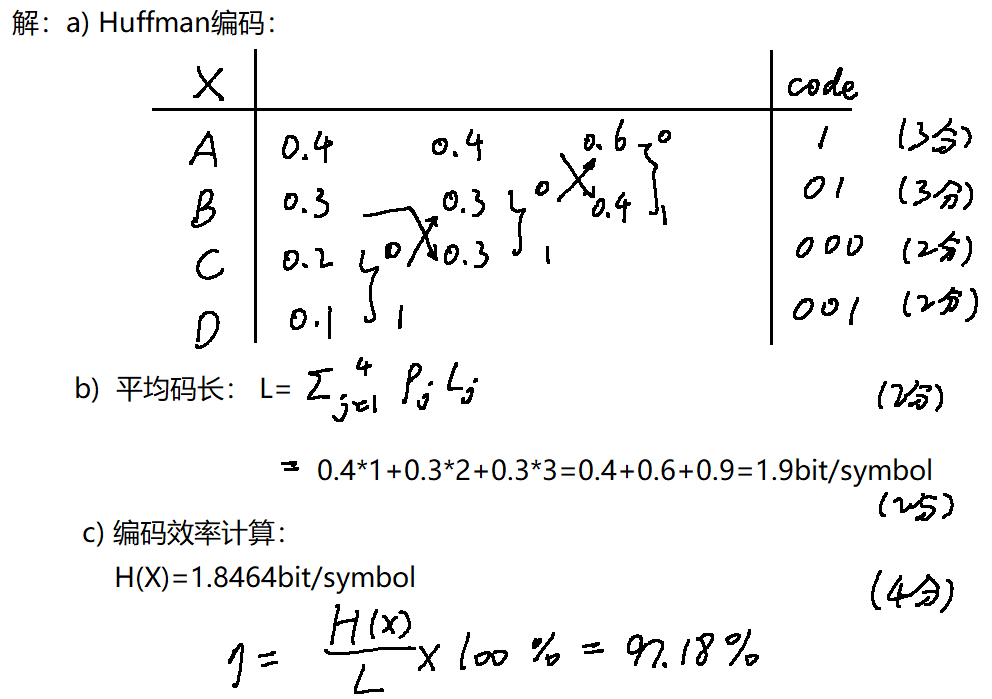 解：a) Huffman编码：
X code
A 0.4 0.4 0.6 0 1 (3分)
B 0.3 0.3 0 0.4 1 01 (3分)
C 0.2 0 0.3 1 000 (2分)
D 0.1 1 001 (2分)
b) 平均码长： L= Σ_{j=1}^{4} P_j L_j (2分)
= 0.4*1+0.3*2+0.3*3=0.4+0.6+0.9=1.9bit/symbol
(2分)
c) 编码效率计算：
H(X)=1.8464bit/symbol (4分)
η = H(X)/L × 100 % = 97.18%